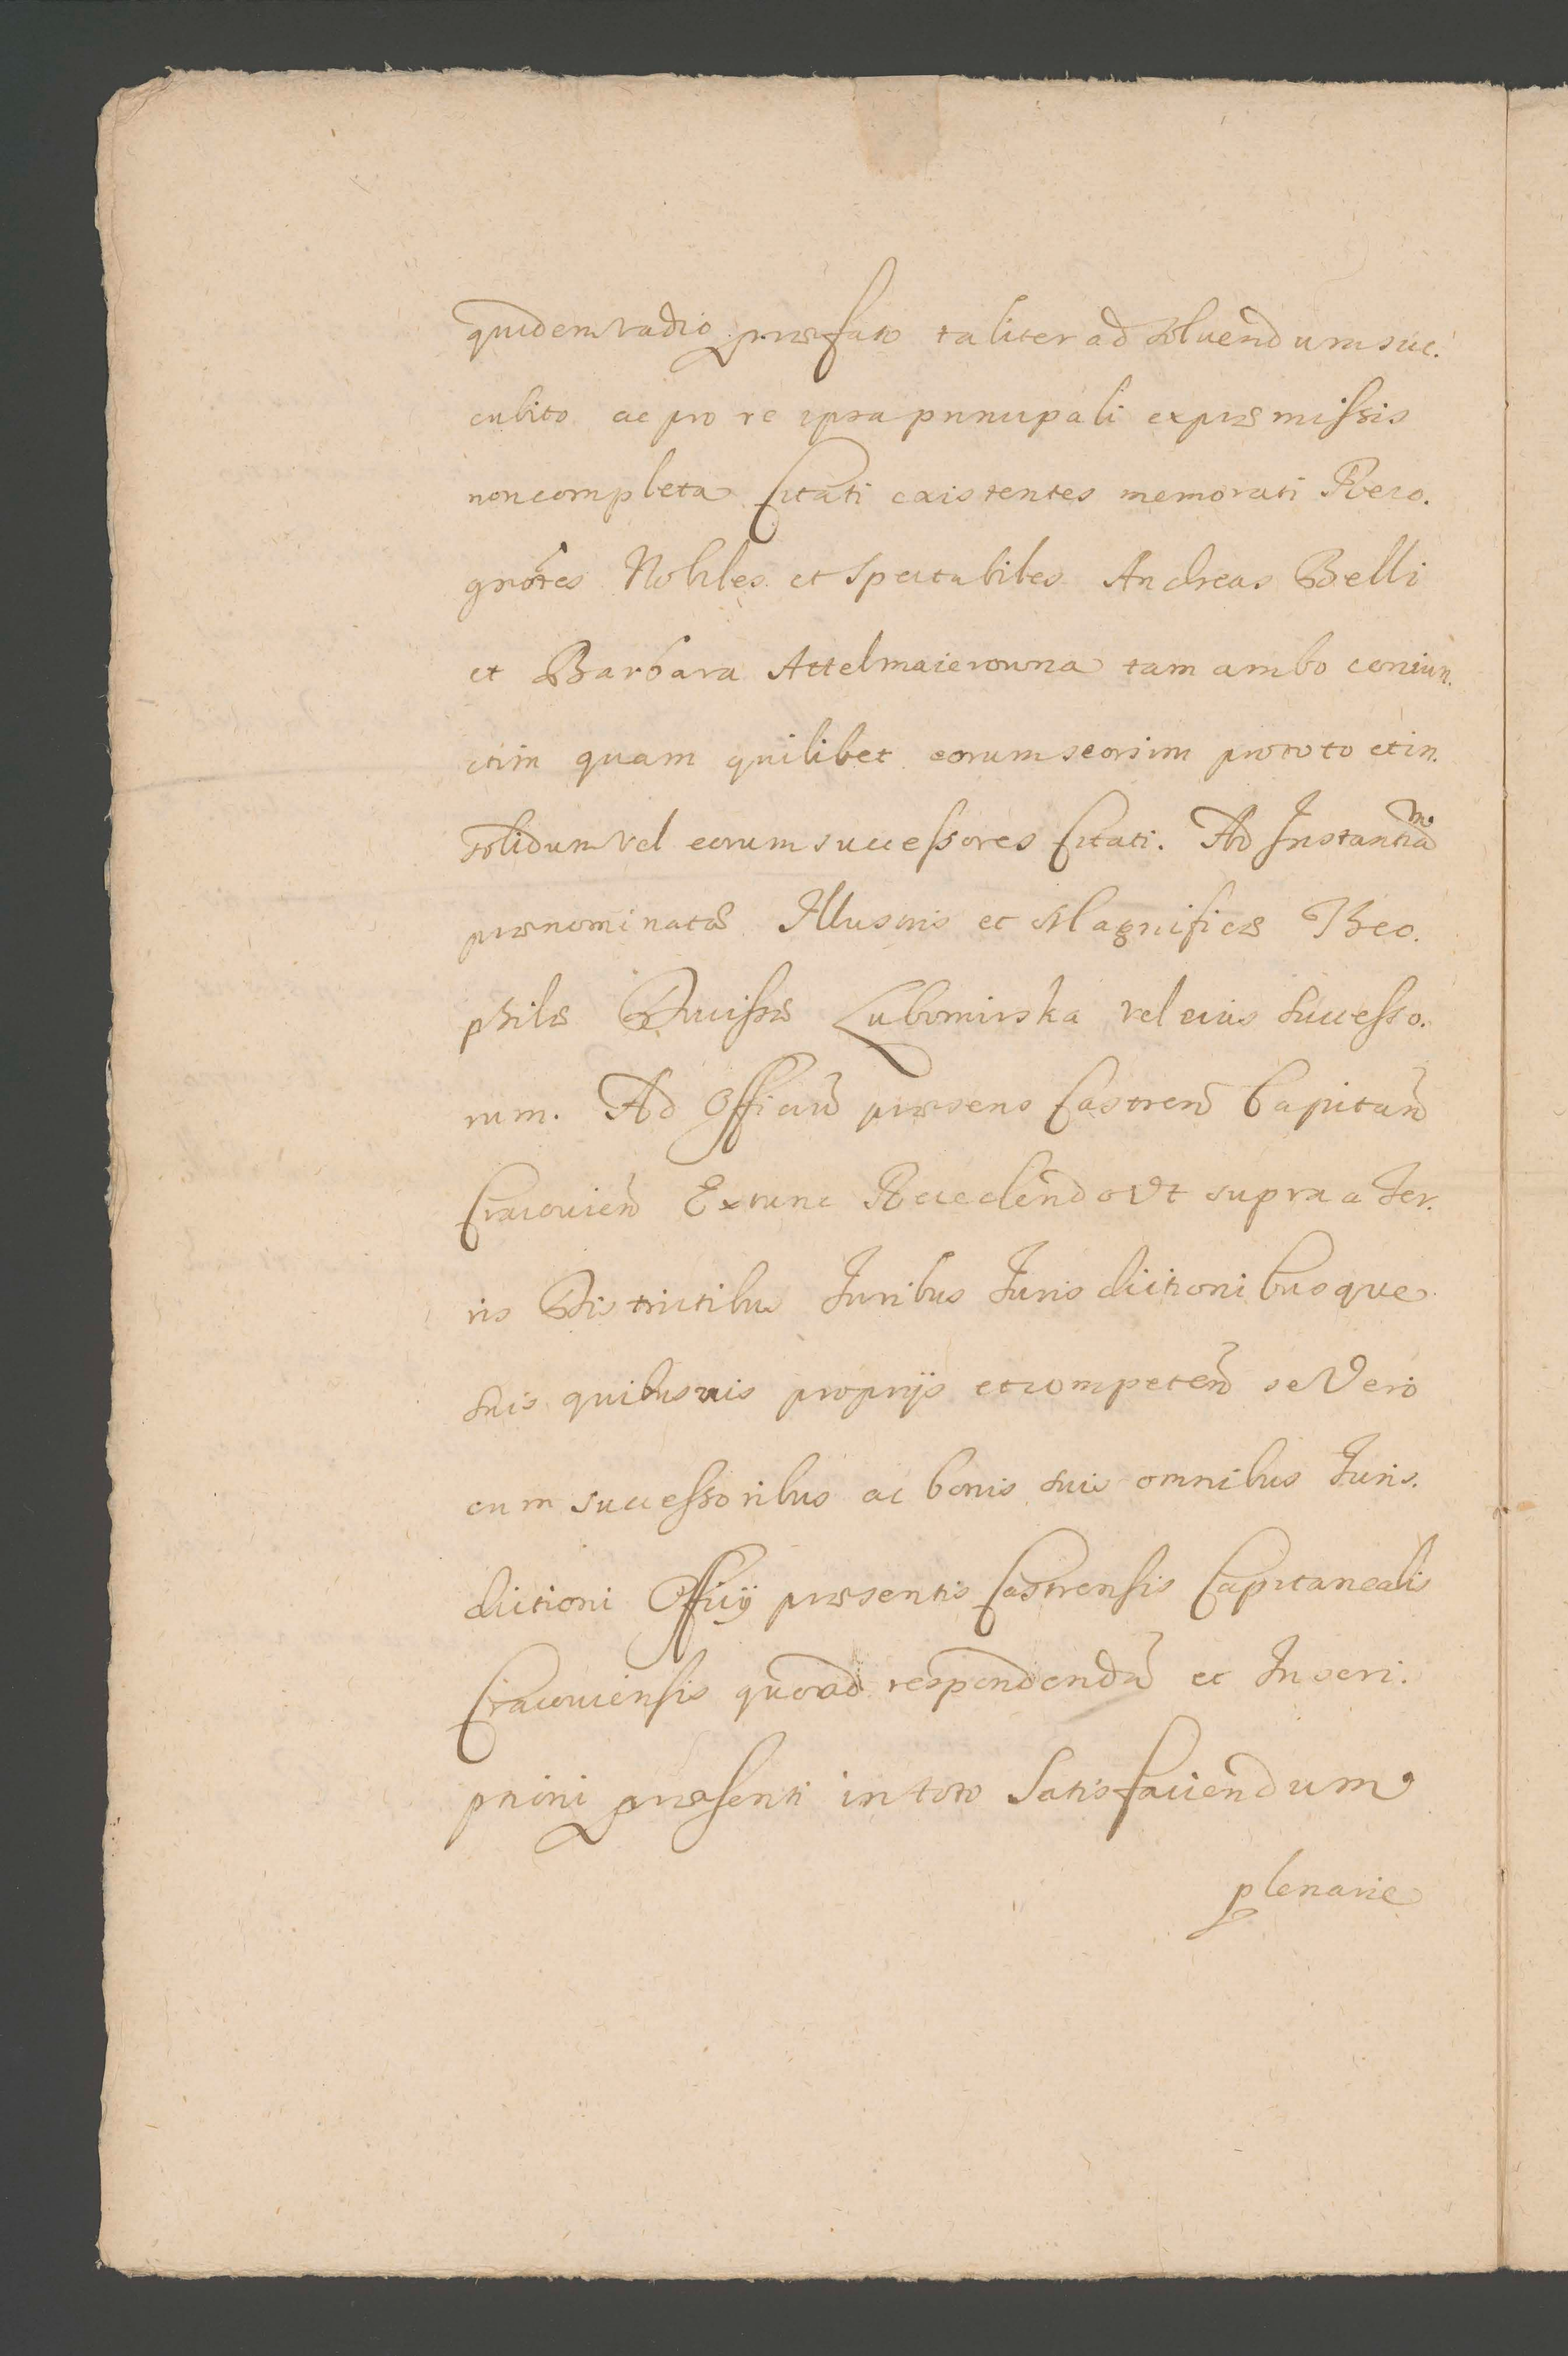 quidem vadio præfato taliter ad soluendum suc.
cubito ac pro re ipsa principali ex præmissis
non completa Citati existentes memorati Reco.
gnōtes Nobiles et Spectabiles Andreas Belli
et Barbara Attelmaierowna tam ambo coniun.
ctim quam quilibet eorum seorsim pro toto et in.
solidum vel eorum successores Citati. Ad Instantiam
prænominatæ Illustris et Magnificæ Theo.
philæ Ducissæ Lubomirska vel eius Successo.
rum. Ad Officiū præsens Castreñ Capitañ
Cracovieñ Extunc Recedendo Vt supra a Ter.
ris Districtibus Iuribus Iurisdictionibusque
suis quibusuis proprijs et competeñ se Vero
cum successoribus ac bonis suis omnibus Iuris.
dictioni Officij præsentis Castrensis Capitanealis
Cracouiensis quo ad respondendū et Inscri.
ptioni præsenti in toto Satisfaciendum
plenarie